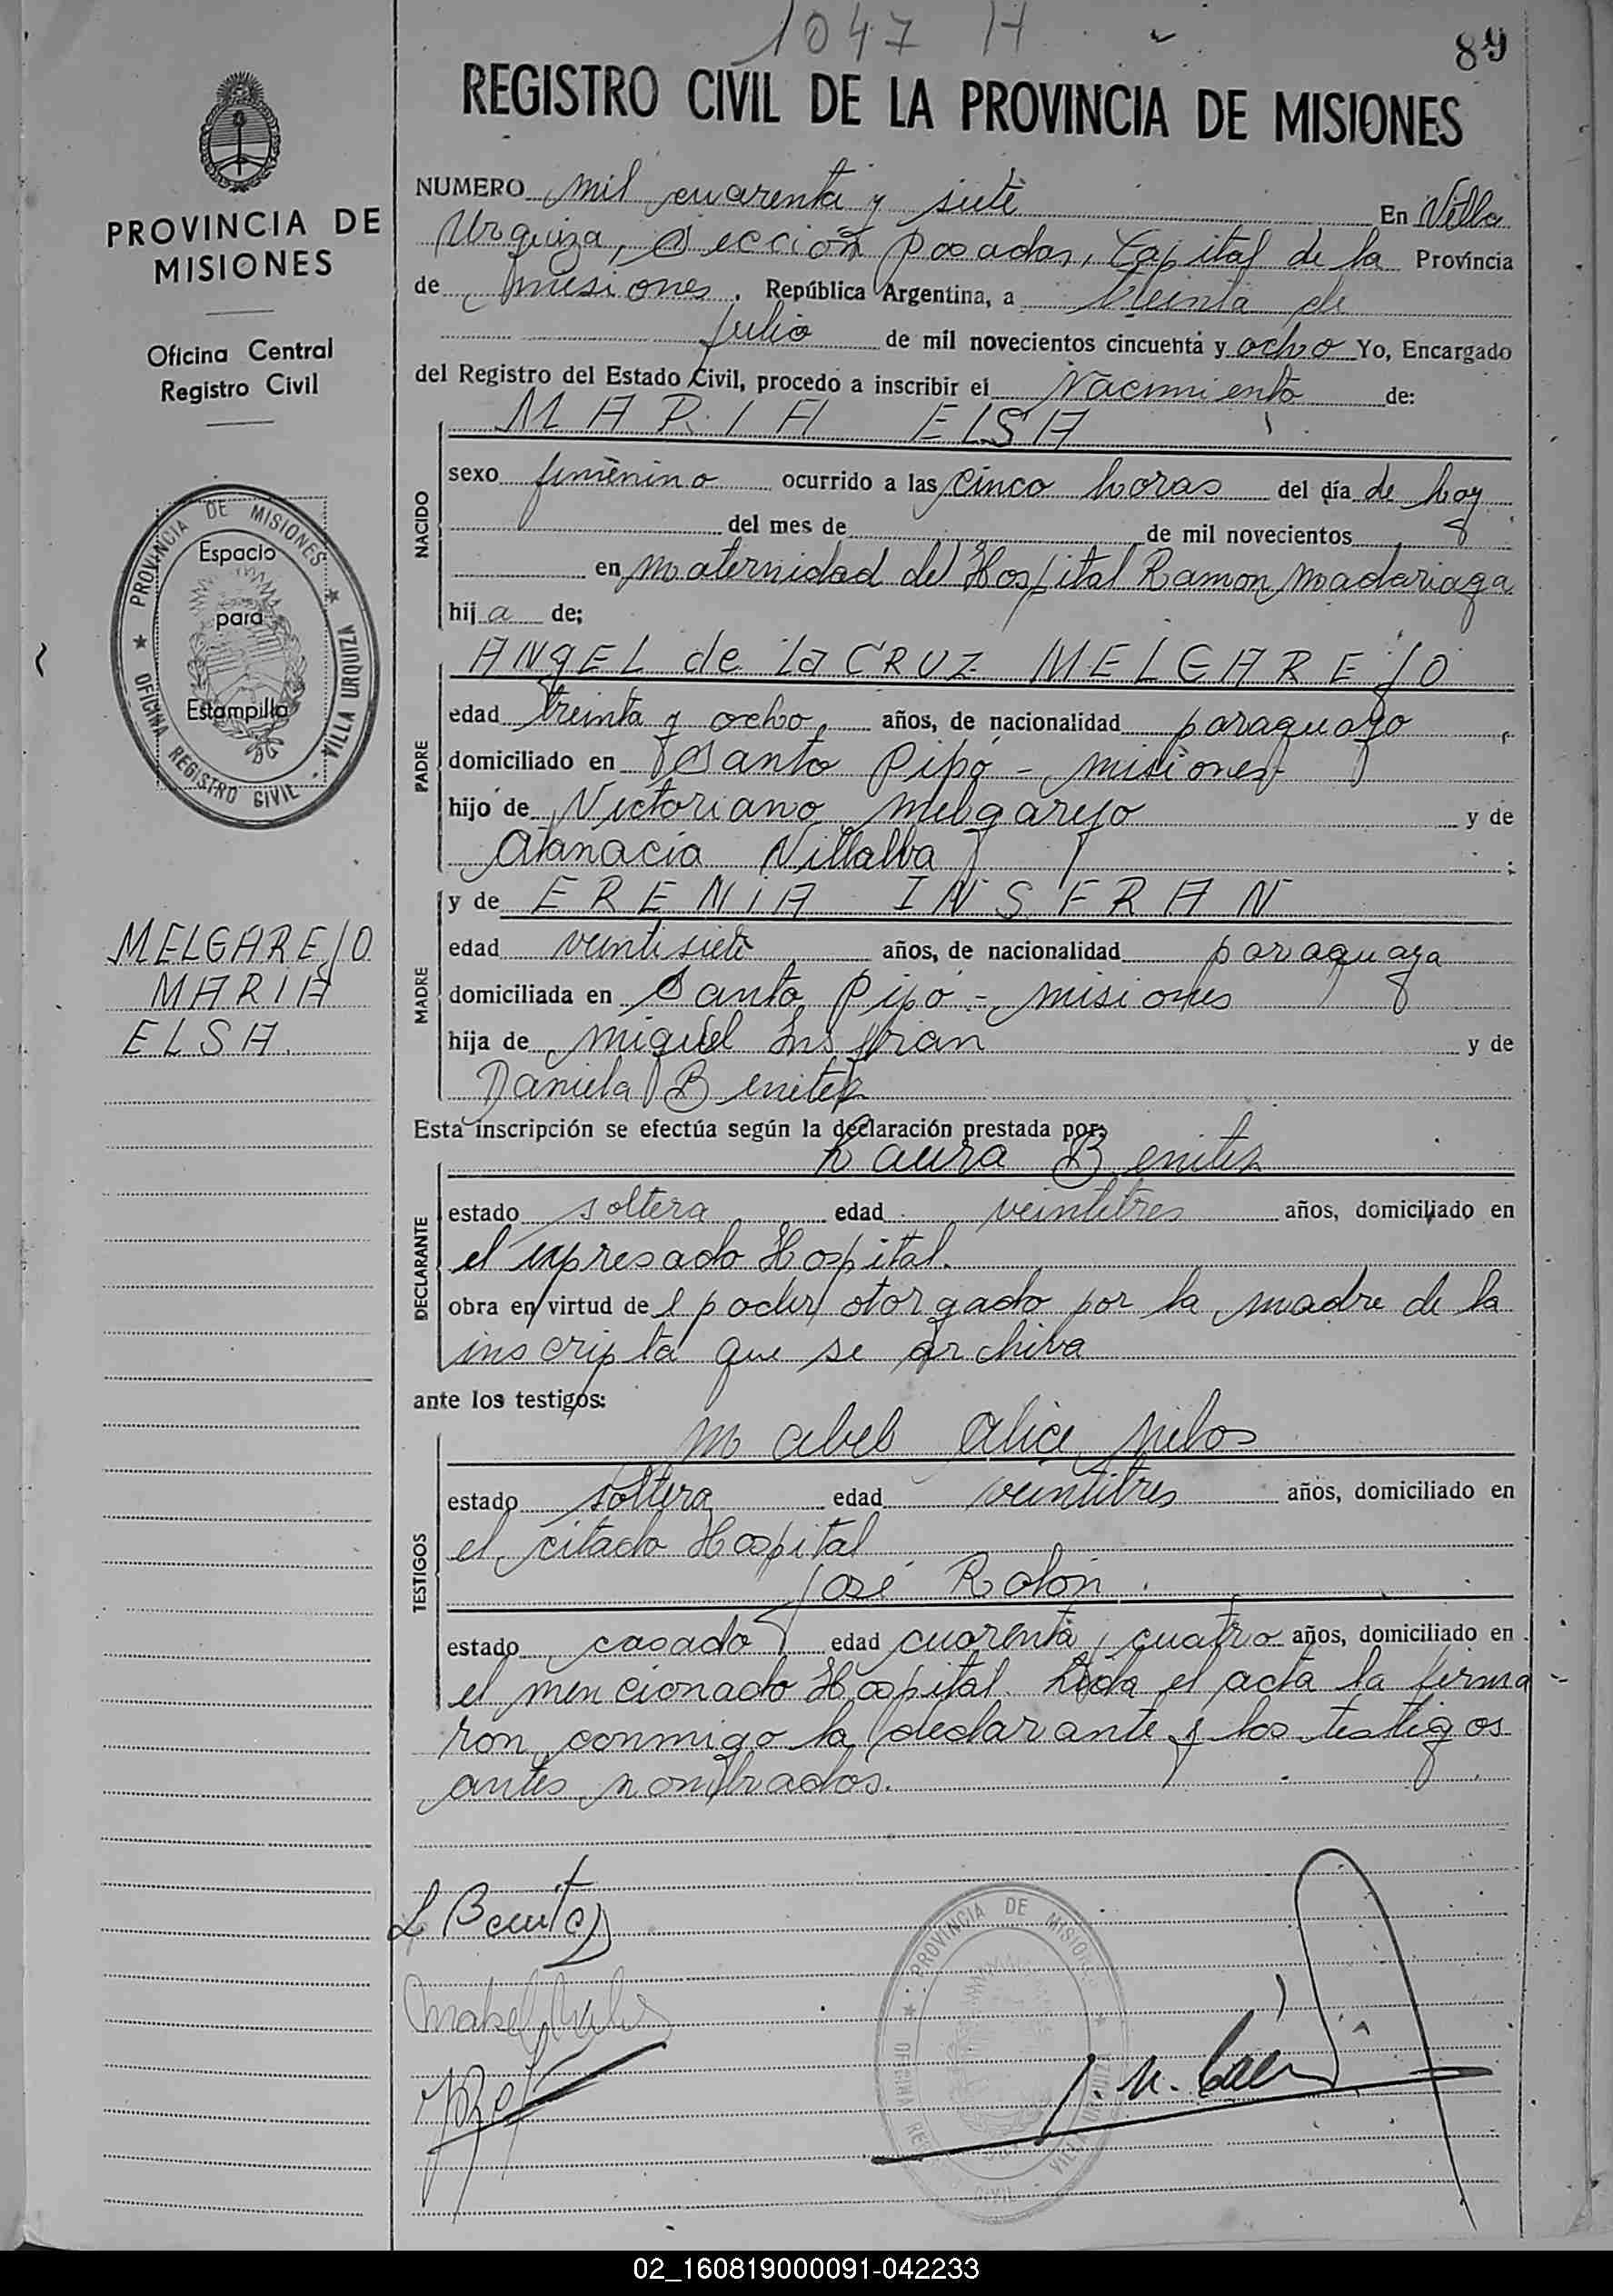 1047 H
89
REGISTRO CIVIL DE LA PROVINCIA DE MISIONES
PROVINCIA DE
MISIONES
Oficina Central
Registro Civil
PROVINCIA DE MISIONES
OFICINA REGISTRO CIVIL - VILLA URQUIZA
Espacio
para
Estampilla
MELGAREJO
MARIA
ELSA
NUMERO mil cuarenta y siete En Villa
Urquiza, Sección Posadas, Capital de la Provincia
de misiones, República Argentina, a treinta de
julio de mil novecientos cincuenta y ocho Yo, Encargado
del Registro del Estado Civil, procedo a inscribir el Nacimiento de:
NACIDO
MARIA ELSA
sexo femenino ocurrido a las cinco horas del día de hoy
del mes de de mil novecientos
en maternidad del Hospital Ramon madariaga
hija de;
PADRE
ANgEL de la CRUZ MELGAREJO
edad treinta y ocho años, de nacionalidad paraguayo,
domiciliado en Santo Pipó - misiones
hijo de Victoriano melgarejo y de
Atanacia Villalba ;
MADRE
y de ERENIA INSFRAN
edad veintisiete años, de nacionalidad paraguaya
domiciliada en Santo Pipó - misiones
hija de miguel Insfran y de
Daniela Benitez
Esta inscripción se efectúa según la declaración prestada por:
DECLARANTE
Laura Benitez
estado soltera edad veintitres años, domiciliado en
el expresado Hospital.
obra en virtud del poder otorgado por la madre de la
inscripta que se archiva
ante los testigos:
TESTIGOS
mabel Alice
estado soltera edad veintitres años, domiciliado en
el citado Hospital
José Rolón
estado casado edad cuarenta y cuatro años, domiciliado en
el mencionado Hospital. Leida el acta la firma
ron conmigo la declarante y los testigos
antes nombrados.
L Benitez
PROVINCIA DE MISIONES
02_160819000091-042233